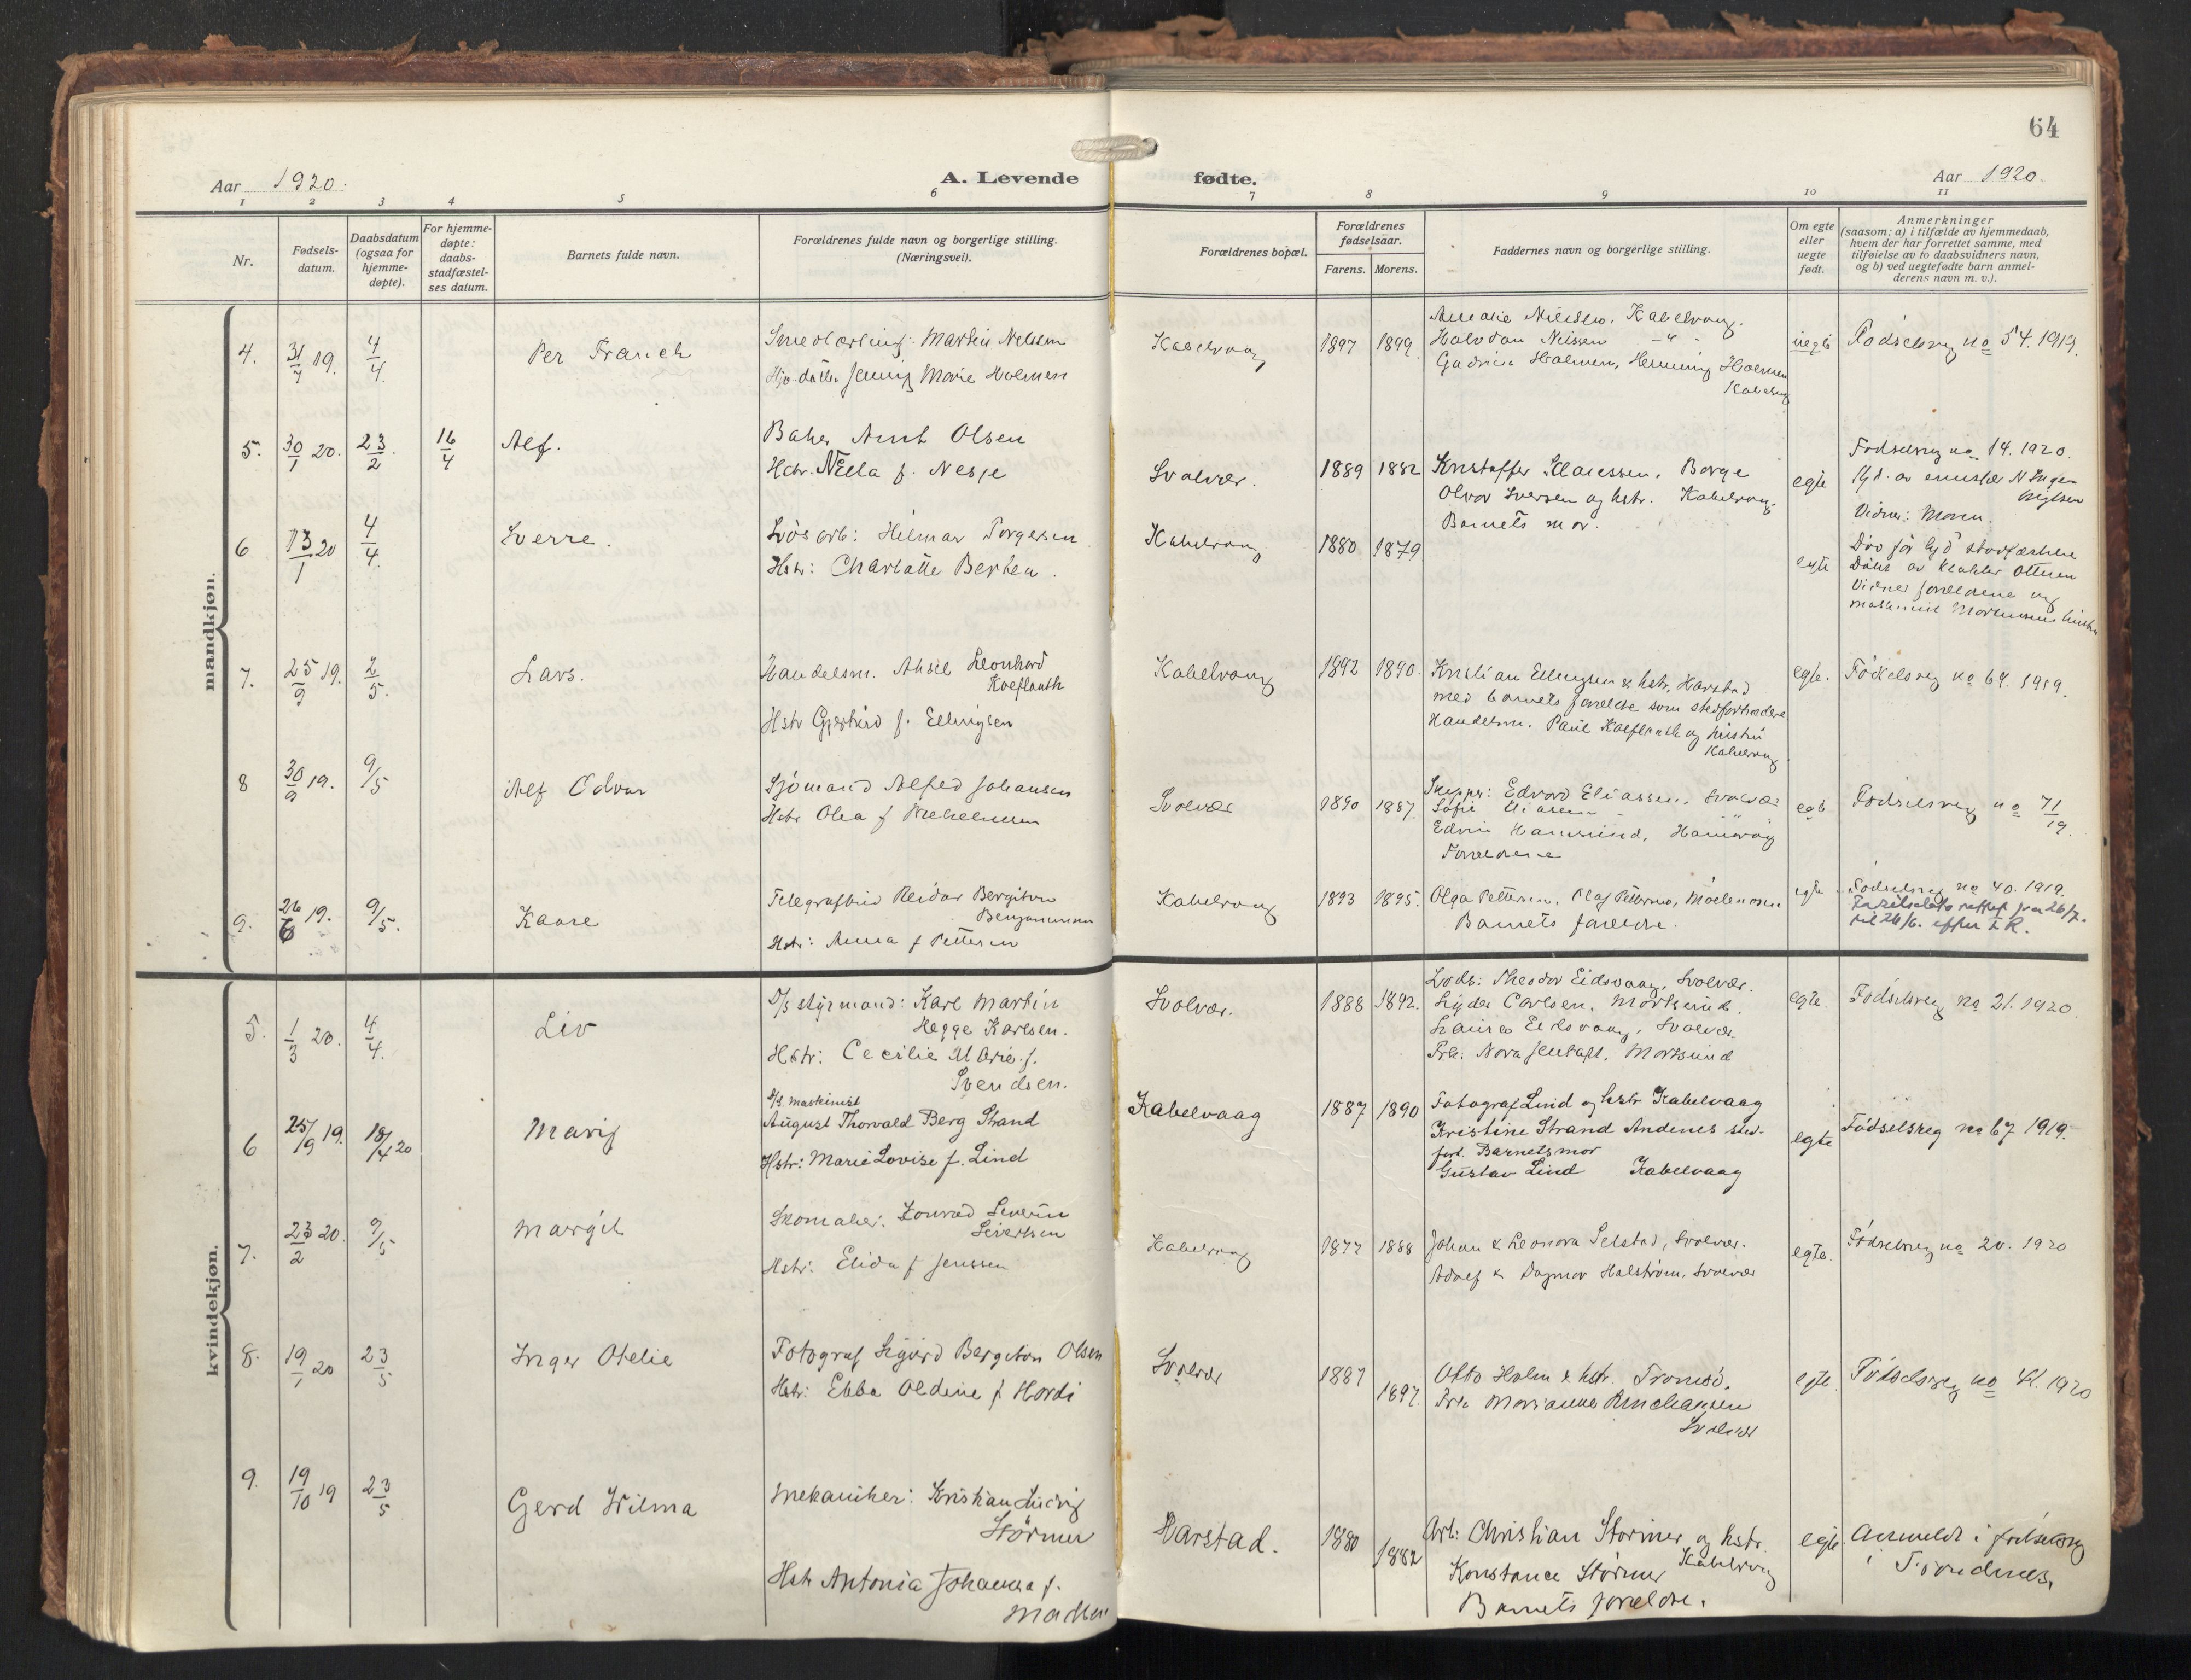 64
Aar 1920.
A. Levende fødte.
Aar 1920.
1 2 3 4 5 6 7 8 9 10 11
Nr.
Fødsels-
datum.
Daabsdatum
(ogsaa for
hjemme-
døpte).
For hjemme-
døpte:
daabs-
stadfæstel-
ses datum.
Barnets fulde navn.
Forældrenes fulde navn og borgerlige stilling.
(Næringsvei).
Forældrenes bopæl.
Forældrenes
fødselsaar.
Farens. Morens.
Faddernes navn og borgerlige stilling.
Om egte
eller
uegte
født.
Anmerkninger
(saasom: a) i tilfælde av hjemmedaab,
hvem der har forrettet samme, med
tilføielse av to daabsvidners navn,
og b) ved uegtefødte barn anmel-
derens navn m. v.).
mandkjøn.
4. 31/7 19. 4/4. Per Franck
Smedlærling: Martin Nelssen
Marie Holmen
Kabelvaag 1897 1899
Kabelvaag.
Halvdan Nilssen
Holmen, Henning Holmen
Kabelvaag
uegte
Fødselsreg no 54. 1919.
5. 30/1 20. 23/2. 16/4 Alf.
Baker Arnt Olsen
Hstr. Nilla f. Nesje
Svolvær. 1889 1882
Kristoffer Klaussen, Borge
Olvar Iversen og hstr. Kabelvaag.
Barnets mor.
egte
Fødselsreg no 14. 1920.
Vidner: Moren.
6 13/1 20 4/4. Sverre.
Løsarb: Hilmar Torgersen
Hstr: Charlotte Berten.
Kabelvaag 1880 1879
egte
Død før
Døbt av Ottesen
Vidner forældrene og
maskinist Mortensens hustru
7. 25/9 19. 2/5. Lars.
Handelsm. Aksel Leonhard
Koeflauth
Hstr Gjertrud f. Ellingsen
Kabelvaag 1892 1890.
Kristian Ellingsen & hstr, Harstad
med barnets forældre som stedfortrædere
Handelsm. Paul Koeflauth og hustru
Kabelvaag
egte.
Fødselsreg no 69. 1919.
8 30/9 19. 9/5 Alf Odvar
Sjømand Alfred Johansen
Hstr Olea f Mikkelsen
Svolvær 1890 1887.
Skipper: Edvard Eliassen, Svolvær
Sofie Eliassen
Edvin Hamsund, Hanøvåg
Forældrene
egte
Fødselsreg no 71/19.
9. 26/6 19. 9/5. Kaare
Telegrafbud Reidar Bergiton
Benjaminsen
Hstr: Anna f Pettersen
Kabelvaag 1893 1895.
Olga Pettersen, Olaf Pettersen, Moelnesen
Barnets forældre.
egte
Fødselsreg no 40. 1919.
Fødselsdato rettet fra 26/7.
til 26/6. efter F R.
kvindekjøn.
5. 1/3 20. 4/4. Liv
D/s styrmand: Karl Martin
Hegge Karlsen.
Hstr: Cecilie Marie f.
Svendsen.
Svolvær. 1888 1892.
Lods: Theodor Eidsvaag, Svolvær.
Lyder Carlsen, Mortsund.
Laura Eidsvaag, Svolvær.
Frk: Nora Jentoft, Mortsund
egte.
Fødselsreg no 21. 1920.
6 25/9 19. 18/4 20 Marij
D/s maskinist
August Thorvald Berg Strand
Hstr: Marie Lovise f. Lind
Kabelvaag 1887 1890
Fotograf Lind og hstr Kabelvaag
Kristine Strand Andenes sted-
fort. Barnets mor
Gustav Lind Kabelvaag
egte
Fødselsreg no 67 1919.
7. 23/2 20. 9/5 Margit
Skomaker: Konrad Severin
Sivertsen
Hstr: Elida f Jenssen
Kabelvaag 1877 1888
Johan & Leonora Selstad, Svolvær.
Adolf & Dagmar Halstrøm, Svolvær
egte.
Fødselsreg no 20. 1920
8. 19/1 20 23/5 Inger Otelie
Fotograf Sigurd Bergiton Olsen
Hstr: Ebba Oldine f Hordi
Svolvær 1887 1897.
Otto Holm & hstr. Tromsø.
Frk Marianne Amchansen
Svolvær
egte.
Fødselsreg no 41. 1920
9. 19/10 19 23/5 Gerd Wilma
Mekaniker: Kristian Ludvig
Størmer
Hstr Antonia Johanna f.
Madsen
Harstad. 1880 1882
Arb: Christian Størmer og hstr.
Kabelvaag
Konstance Størmer
Barnets forældre.
egte
Anmeldt i fødselsreg
i Trondenes.